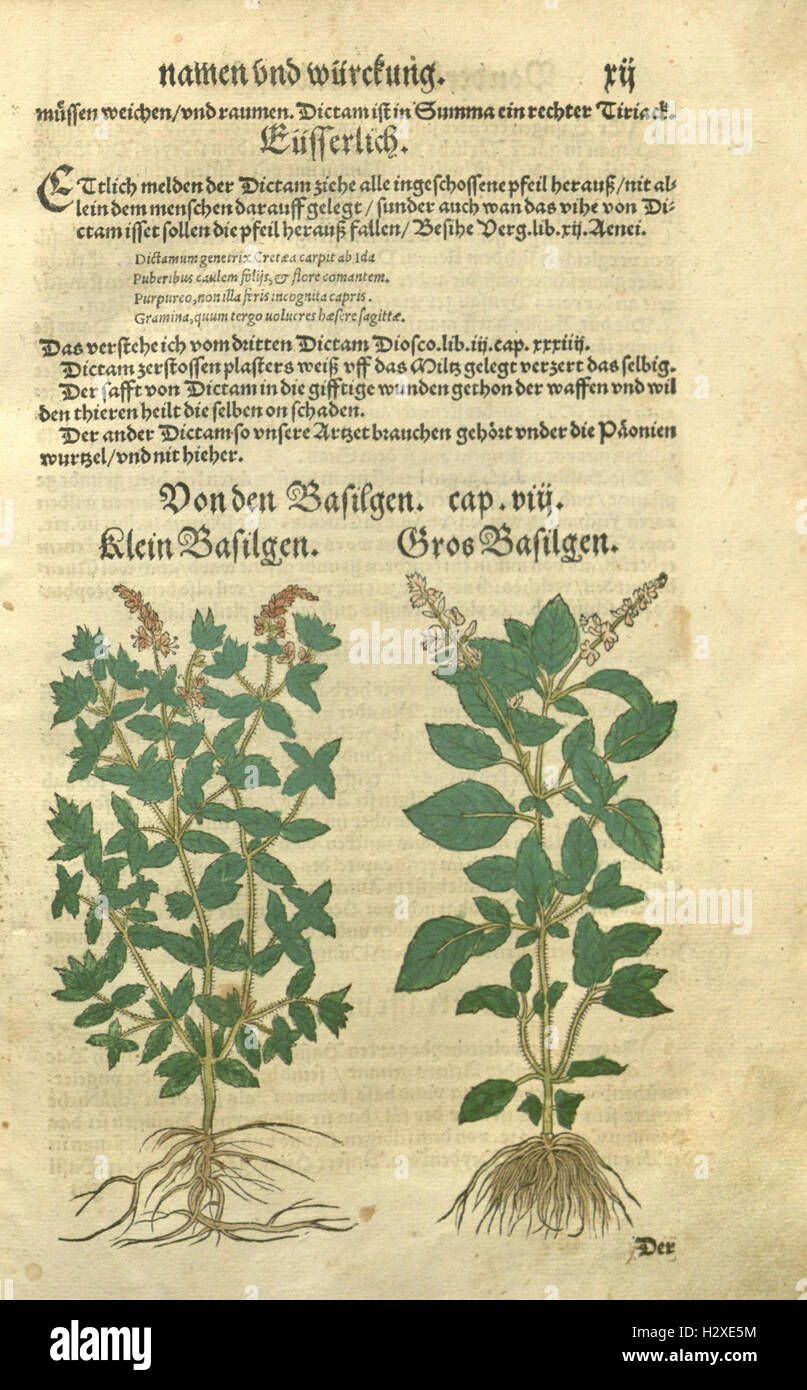 namen vnd würckung. xij
müssen weichen/vnd raumen. Dictam ist in Summa ein rechter Tiriack.
Eüsserlich.
ETtlich melden der Dictam ziehe alle ingeschossene pfeil herauß/nit al⸗
lein dem menschen darauff gelegt/sunder auch wan das vihe von Di⸗
ctam isset sollen die pfeil herauß fallen/Besihe Verg.lib.xij.Aenei.
Dictamum genetrix Cretæa carpit ab Ida
Puberibus caulem folijs, & flore comantem.
Purpureo, non illa feris incognita capris.
Gramina, quum tergo uolucres hæsere sagittæ.
Das verstehe ich vom dritten Dictam Diosco.lib.iij.cap.xxxiiij.
Dictam zerstossen plasters weiß vff das Miltz gelegt verzert das selbig.
Der safft von Dictam in die gifftige wunden gethon der waffen vnd wil
den thieren heilt die selben on schaden.
Der ander Dictam so vnsere Artzet brauchen gehört vnder die Päonien
wurtzel/vnd nit hieher.
Von den Basilgen. cap.viij.
Klein Basilgen. Gros Basilgen.
Der
alamy
alamy
alamy
alamy stock photo
H2XE5M
www.alamy.com